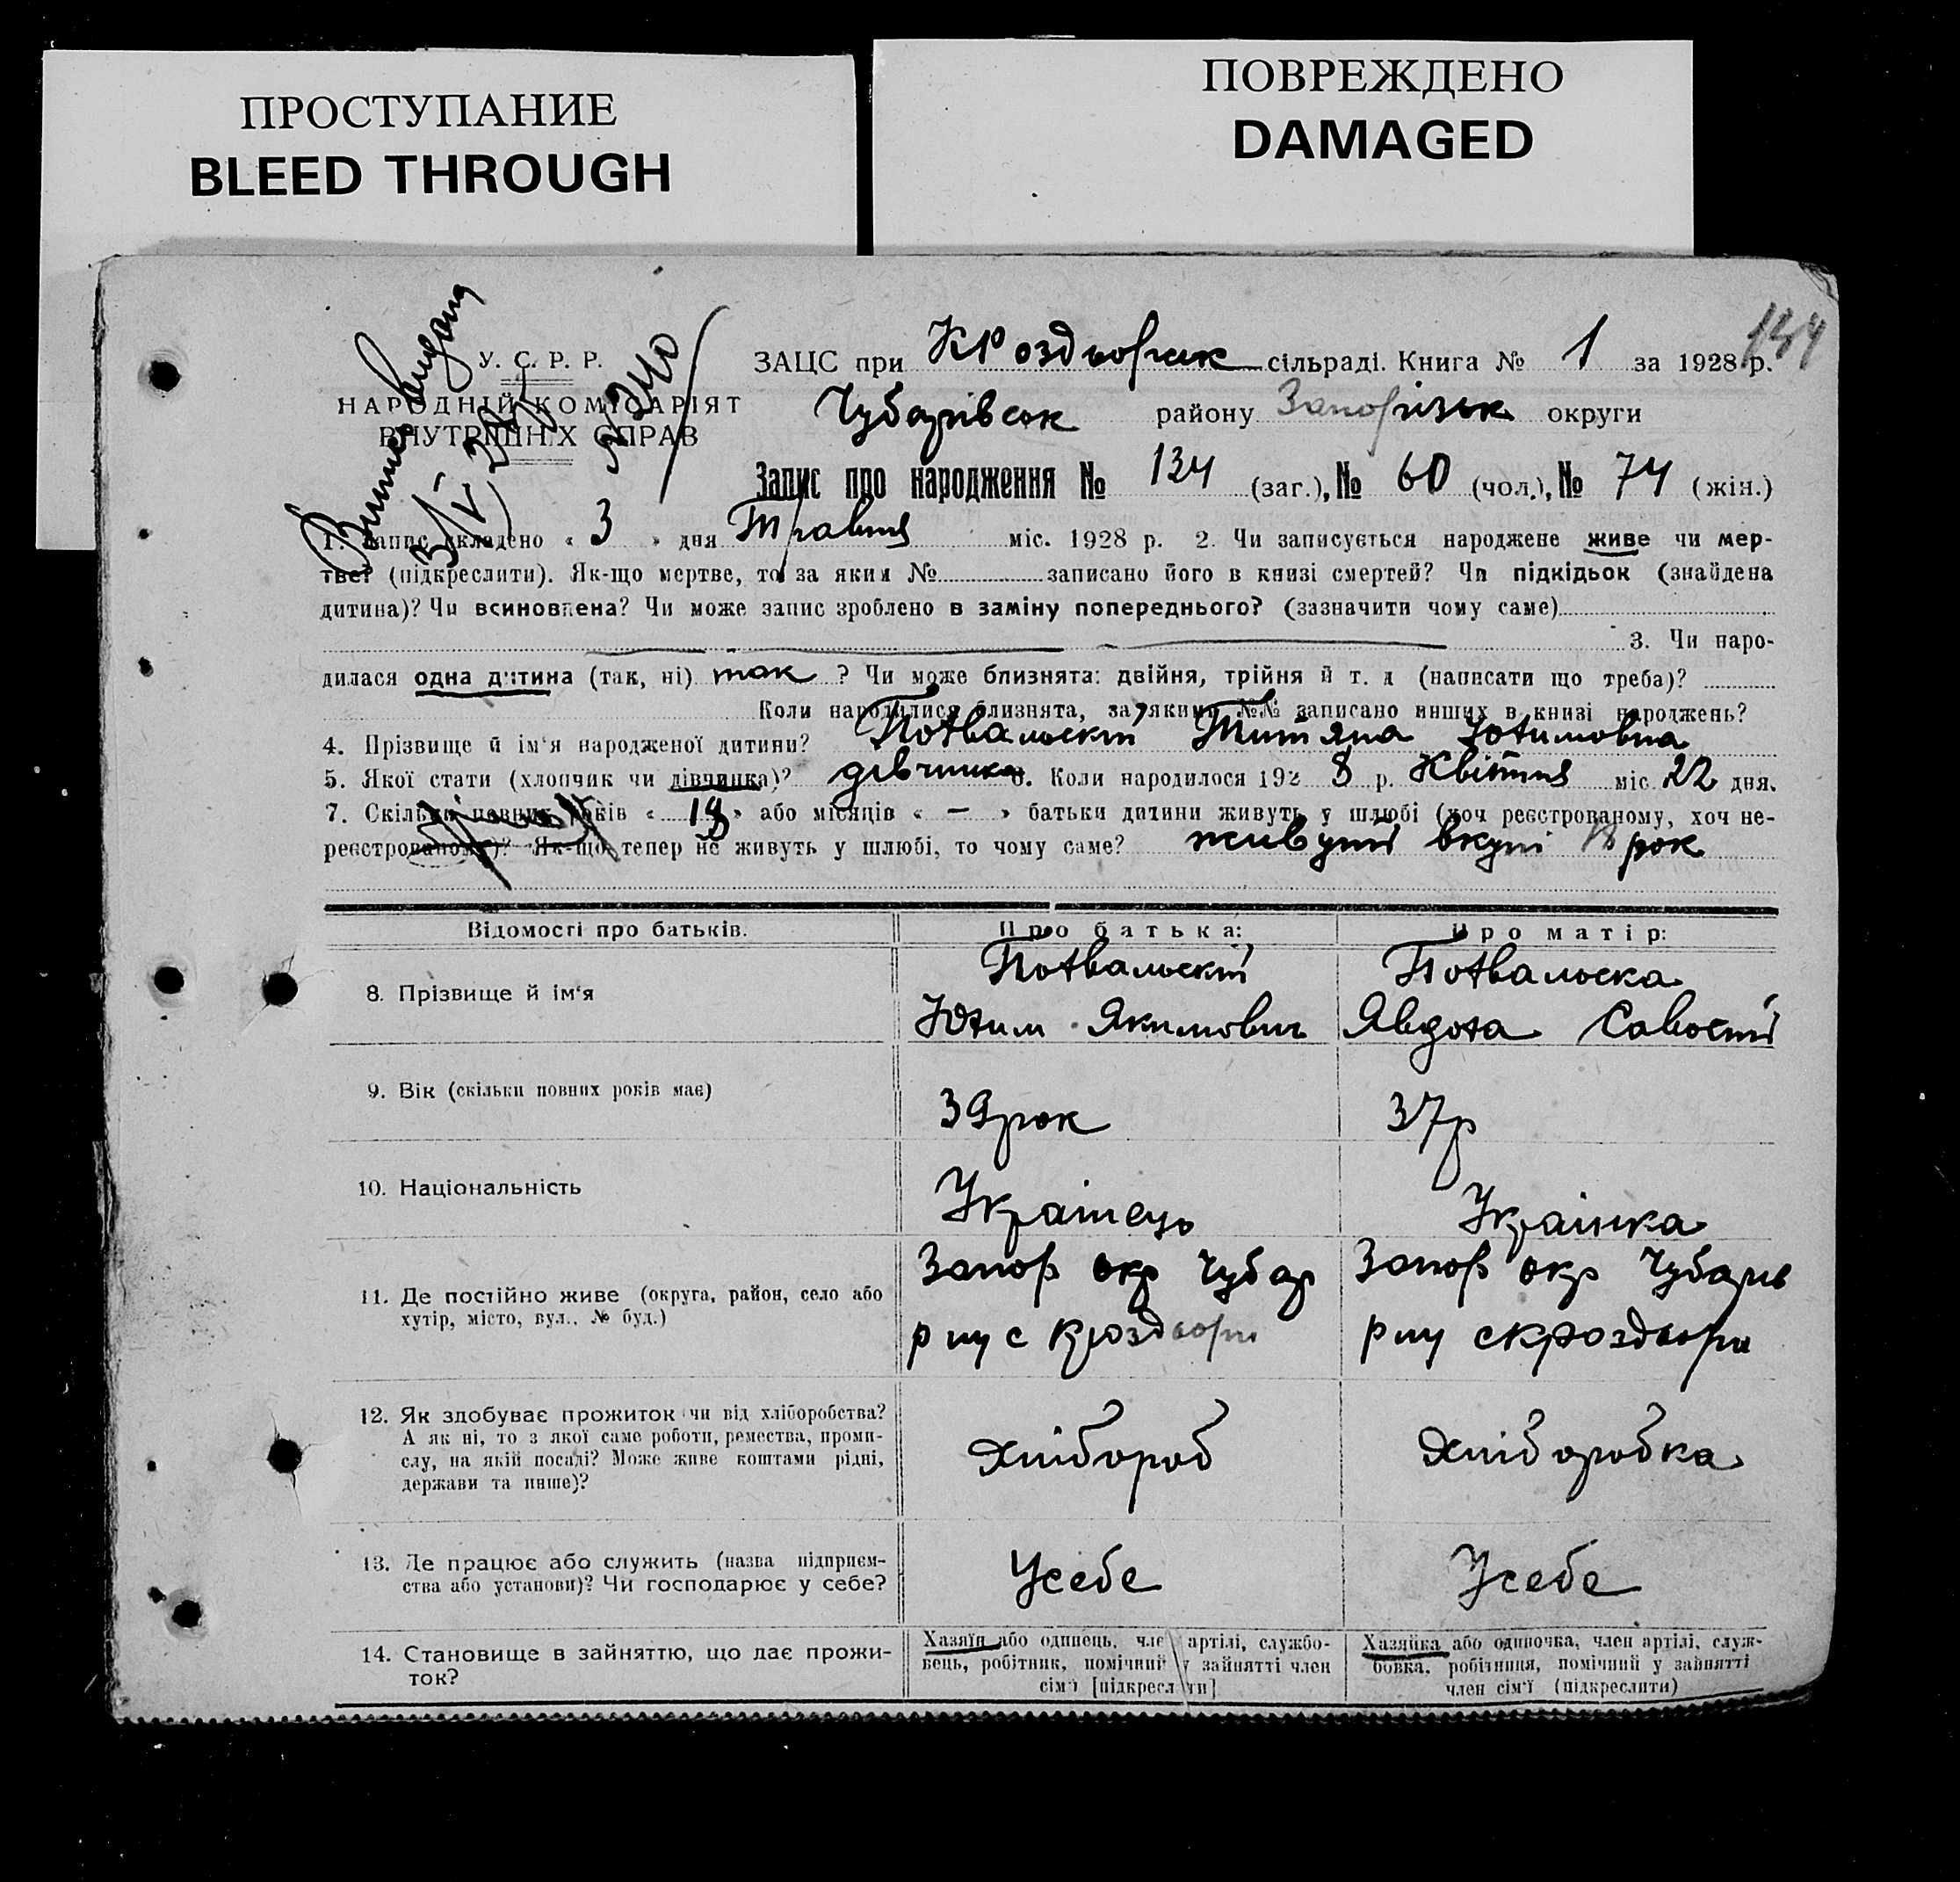 ПРОСТУПАНИЕ
BLEED THROUGH
ПОВРЕЖДЕНО
DAMAGED
134
У. С. Р. Р.
НАРОДНІЙ КОМІСАРІЯТ
ВНУТРІШНІХ СПРАВ
ЗАЦС при Кроздворик сільраді. Книга № 1 за 1928 р.
Чубарівськ району Запорізьк округи
Запис про народження № 134 (заг.), № 60 (чол.), № 74 (жін.)
1. Запис складено « 3 » дня Травня міс. 1928 р. 2. Чи записується народжене живе чи мер-
тве? (підкреслити). Як-що мертве, то за яким № записано його в книзі смертей? Чи підкідьок (знайдена
дитина)? Чи всиновлена? Чи може запис зроблено в заміну попереднього? (зазначити чому саме)
3. Чи наро-
дилася одна дитина (так, ні) так ? Чи може близнята: двійня, трійня й т. д (написати що треба)?
Коли народилися близнята, за якими №№ записано инших в книзі народжень?
4. Прізвище й ім'я народженої дитини? Потвальскій Титяна Ютимовна
5. Якої стати (хлопчик чи дівчинка)? дівчинка 6. Коли народилося 192 8 р. Квітня міс. 22 дня.
7. Скільки повних років « 18 » або місяців « — » батьки дитини живуть у шлюбі (хоч реєстрованому, хоч не-
реєстрованому)? Як-що тепер не живуть у шлюбі, то чому саме? живуть вкупі 18 рок
Відомості про батьків.
Про батька:
Про матір:
8. Прізвище й ім'я
Потвальскій
Ютим Якимович
Потвальска
Явдота Савості
9. Вік (скільки повних років має)
39 рок
37 р
10. Національність
Украінець
Украінка
11. Де постійно живе (округа, район, село або
хутір, місто, вул., № буд.)
Запор окр Чубар
р ну с Кроздвори
Запор окр Чубарів
р ну с Кроздвори
12. Як здобуває прожиток чи від хліборобства?
А як ні, то з якої саме роботи, ремества, проми-
слу, на якій посаді? Може живе коштами рідні,
держави та инше)?
Хлібороб
Хліборобка
13. Де працює або служить (назва підприєм-
ства або установи)? Чи господарює у себе?
Усебе
Усебе
14. Становище в зайняттю, що дає прожи-
ток?
Хазяїн або одинець, член артілі, службо-
вець, робітник, помічний у зайнятті член
сім'ї [підкреслити]
Хазяйка або одиночка, член артілі, служ-
бовка, робітниця, помічний у зайнятті
член сім'ї (підкреслити)